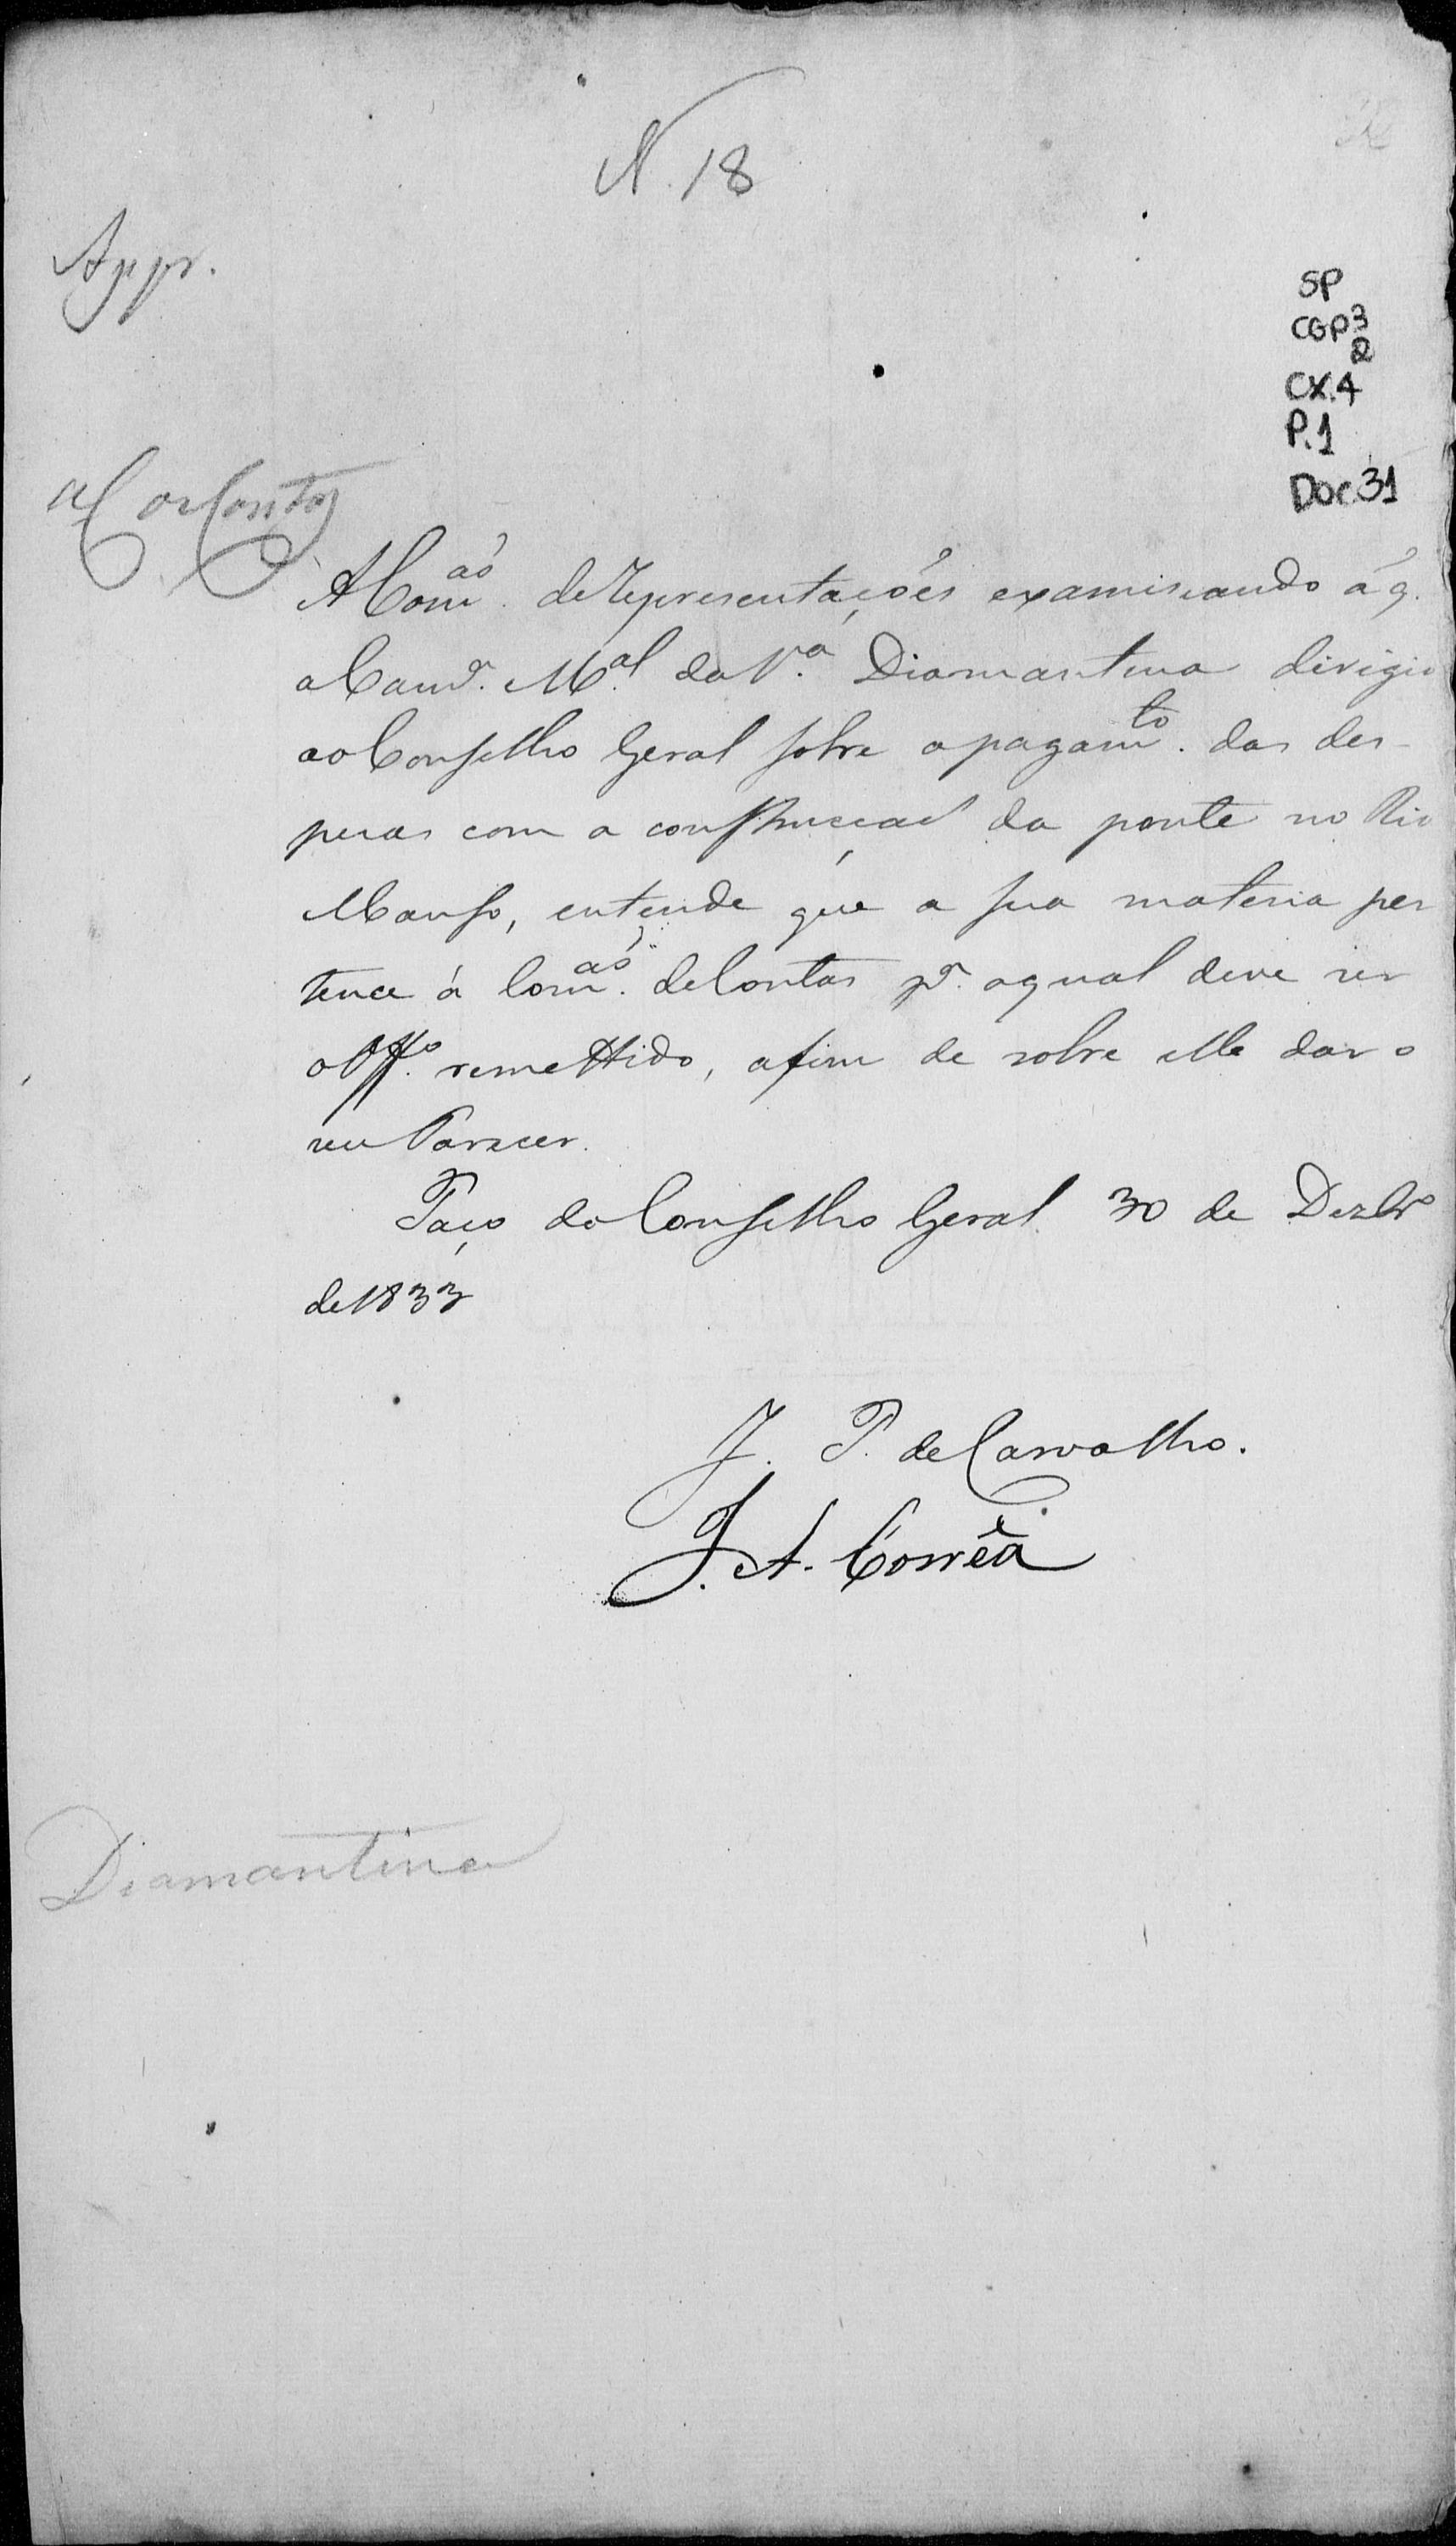 N. 18
Appr.
SP
CGP3
2
CX.4
P.1
Doc.31
Contas
A Com.ão de representações examinando á q.
a Cam.ª M.al da V.ª Diamantina dirigio
ao Conselho Geral sobre o pagam.to das des-
pezas com a construcçaõ da ponte no Rio
Manso, entende que a sua materia per
tence á Com.ão de Contas p.ª a qual deve ser
o Off.º remettido, afim de sobre elle dar o
seu Parecer.
Paço do Conselho Geral 30 de Dezbrº
de 1833
J. P. de Carvalho.
J. A. Corrêa
Diamantina